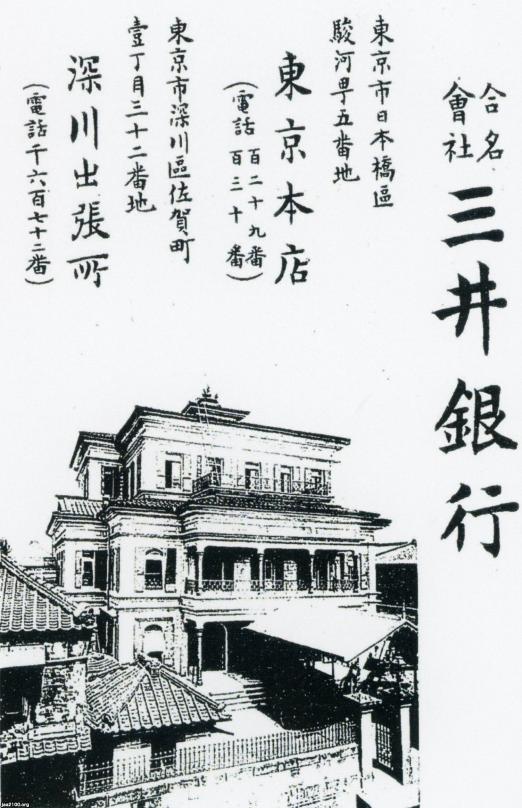 合名
會社
三井銀行
東京市日本橋區
駿河甼五番地
東京本店
(電話 百二十九番
百三十番)
東京市深川區佐賀町
壹丁目三十二番地
深川出張所
(電話千六百七十二番)
jaa2100.org